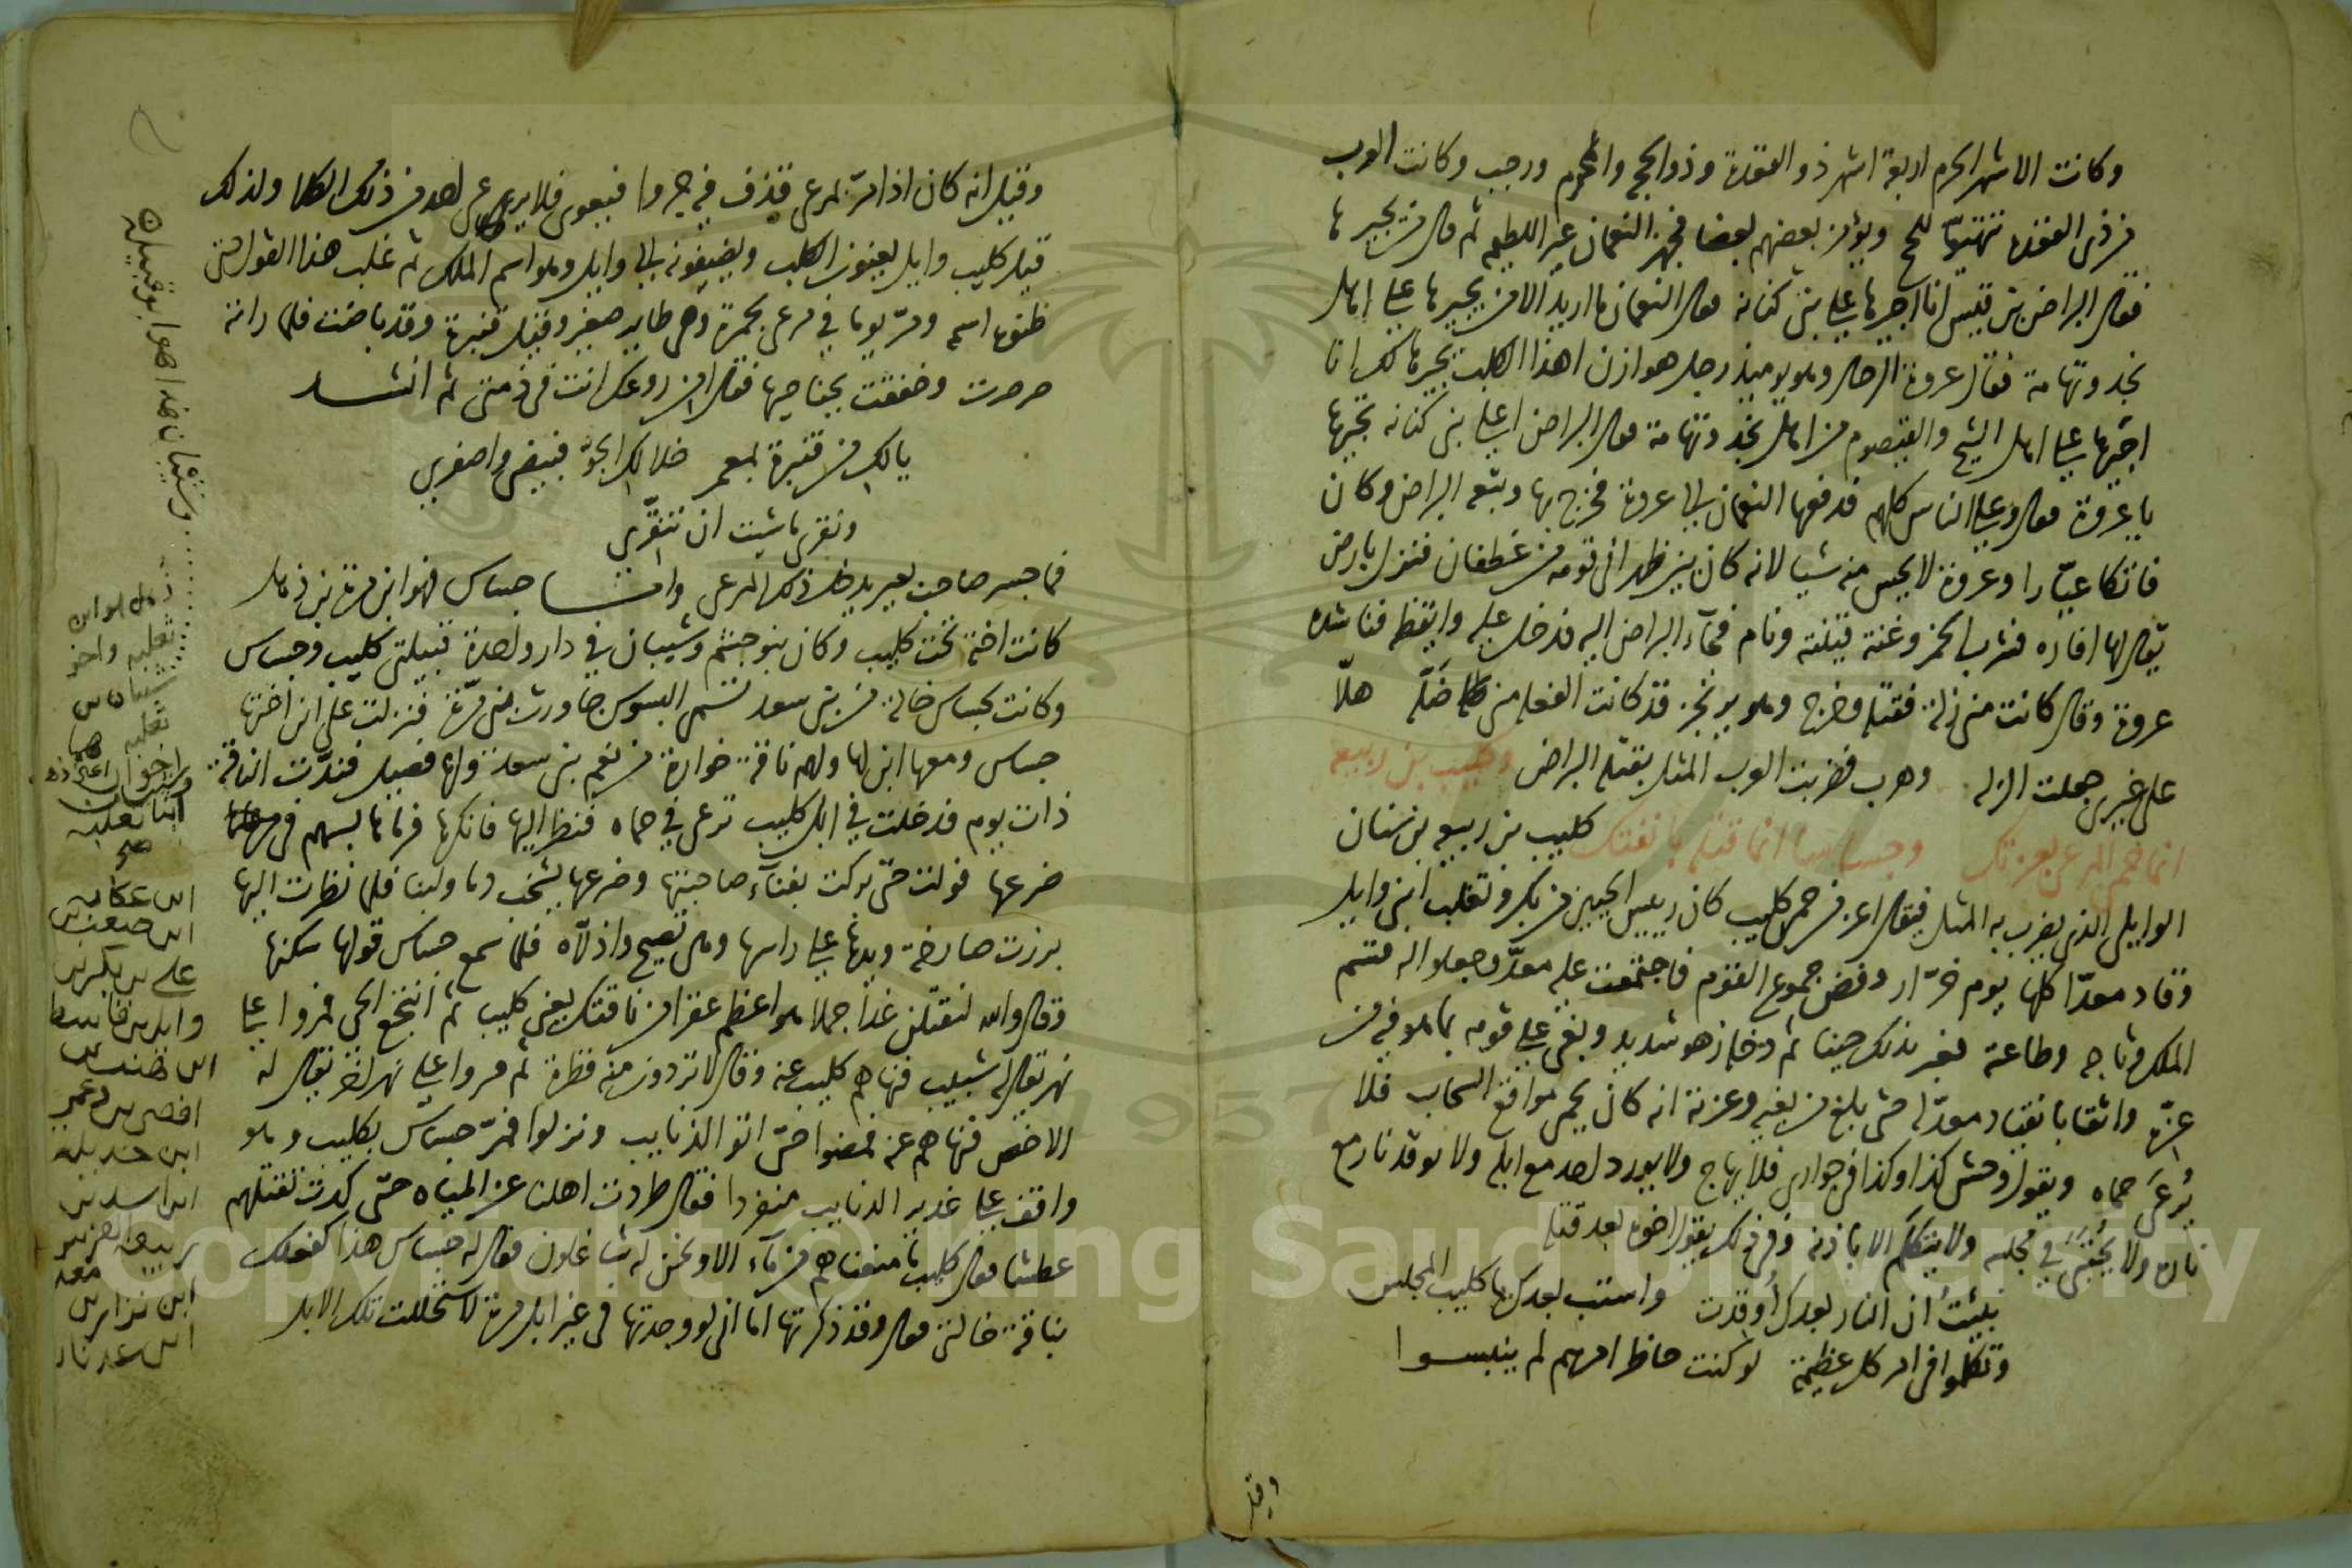 وكانت الاشهر الحرم اربعة اشهر ذو القعدة وذو الحجة والمحرم ورجب وكانت العرب
في ذي القعدة تتهيّا للحج ويؤمن بعضهم بعضا فجهز النعمان عير اللطيمة ثم قال من يجيرها
فقال البراض بن قيس انا اجيرها على بني كنانة فقال النعمان ما اريد الا من يجيرها على اهل
نجد وتهامة فقال عروة الرحال وهو يوميذ رجل هوازن اهذا الكلب يجيرها لك انا
اجيرها على اهل الشيح والقيصوم من اهل نجد وتهامة فقال البراض اعلى بني كنانة تجيرها
يا عروة فقال وعلى الناس كلهم فدفعها النعمان الى عروة فخرج بها وتبعه البراض وكان
فاتكا عيّارا وعروة لا يحس منه شيا لانه كان بين ظهراني قومه من غطفان فنزل بارض
يقال لها افاره فشرب الخمر وغنته قينته ونام فجآء البراض اليه فدخل عليه وايقظه فناشده
عروة وقال كانت مني زلة فقتله وخرج وهو يرتجز قد كانت الفعلة مني ضلّه هلّا
على غيري جعلت الزله وهرب فضربت العرب المثل بفتكة البراض وكليب بن ربيعه
انما حمى المرعى بعزتك وجساسا انما قتله بانفتك كليب بن ربيعه بن سنان
الوايلي الذي يضرب به المثل فيقال اعز من حمى كليب كان رييس الحيين من بكر وتغلب ابني وايل
وقاد معدّا كلها يوم خزّار وفض جموع القوم فاجتمعت عليه معدّ وجعلوا له قسم
الملك وتاجه وطاعته فغبر بذلك حينا ثم دخله زهو شديد وبغى على قومه بما هو فيه من
عزّة واثقا بانقياد معدّ له حتى بلغ من بغيه وعزته انه كان يحمي مواقع السحاب فلا
يُرعى حماه ويقول وحش كذا وكذا في جواري فلا يهاج ولا يورد احد مع ابله ولا توقد نار مع
ناره ولا يحتبى في مجلسه ولا يتكلم الا باذنه وفي ذلك يقول اخوه بعد قتله
نبئتُ ان النار بعدك أُوقدت واستب بعدك يا كليب المجلس
وتكلموا في امر كل عظيمة لو كنت حاظر امرهم لم ينبسوا
وقيل
وقيل انه كان اذا مرّ بمرعى قذف فيه جروا فيعوي فلا يرعى احد من ذلك الكلا ولذلك
قيل كليب وايل يعنون الكلب ويضيفونه الى وايل وهو اسم الملك ثم غلب هذا القول حتى
ظنوه اسمه ومرّ يوما في مرعى بحمرة وهي طاير صغير وقيل قنبرة وقد باضت فلما راته
صرصرت وخفقت بجناحيها فقال امن روعك انت في ذمتي ثم انشد
يالك من قنبرة بمعمر خلا لك الجوّ فبيضي واصفري
ونقري ما شيت ان تنقّري
فما جسر صاحب بعير يدخل ذلك المرعى وامّا جساس فهو ابن مرة بن ذهل
كانت اخته تحت كليب وكان بنو جشم وشيبان في دار واحدة قبيلتي كليب وجساس
وكانت لجساس خالة من بني سعد تسمى البسوس جاورت بني مرّة فنزلت على ابن اختها
جساس ومعها ابن لها ولهم ناقة خوارة من نعم بني سعد ولها فصيل فندّت الناقة
ذات يوم فدخلت في ابل كليب ترعى في حماه فنظر اليها فانكرها فرماها بسهم في
ضرعها فولت حتى بركت بفنآء صاحبتها وضرعها يشخب دما ولبنا فلما نظرت اليها
برزت صارخة ويدها على راسها وهي تصيح واذلّاه فلما سمع جساس قولها سكنها
وقال والله لنقتلن غدا جملا هو اعظم عقرا من ناقتك يعني كليب ثم انتجع الحي فمروا على
نهر يقال له شبيب فنهاهم كليب عنه وقال لا تردون منه قطرة ثم مروا على نهر اخر يقال له
الاخص فنهاهم عنه فمضوا حتى اتوا الذنايب ونزلوا فمرّ جساس بكليب وهو
واقف على غدير الذنايب منفردا فقال طردت اهلنا عن المياه حتى كدت تقتلهم
عطشا فقال كليب ما منعناهم من مآء الا ونحن له شاغلون فقال له جساس هذا كفعلك
بناقة خالتي فقال وقد ذكرتها اما اني لو وجدتها في غير ابل مرة لاستحللت تلك الابل
وشيبان هذا هو ابو قبيلة
ذهل هو ابن
ثعلبه واخو
شيبان بن
ثعلبه
ابنا ثعلبه
ابن عكابه
ابن صعب بن
علي بن بكر بن
وايل بن قاسط
ابن هنب بن
افصى بن دعمي
ابن جديله
ابن اسد بن
ربيعة الفرس
ابن نزار بن
معد
ابن عدنان
Copyright © King Saud University
1957